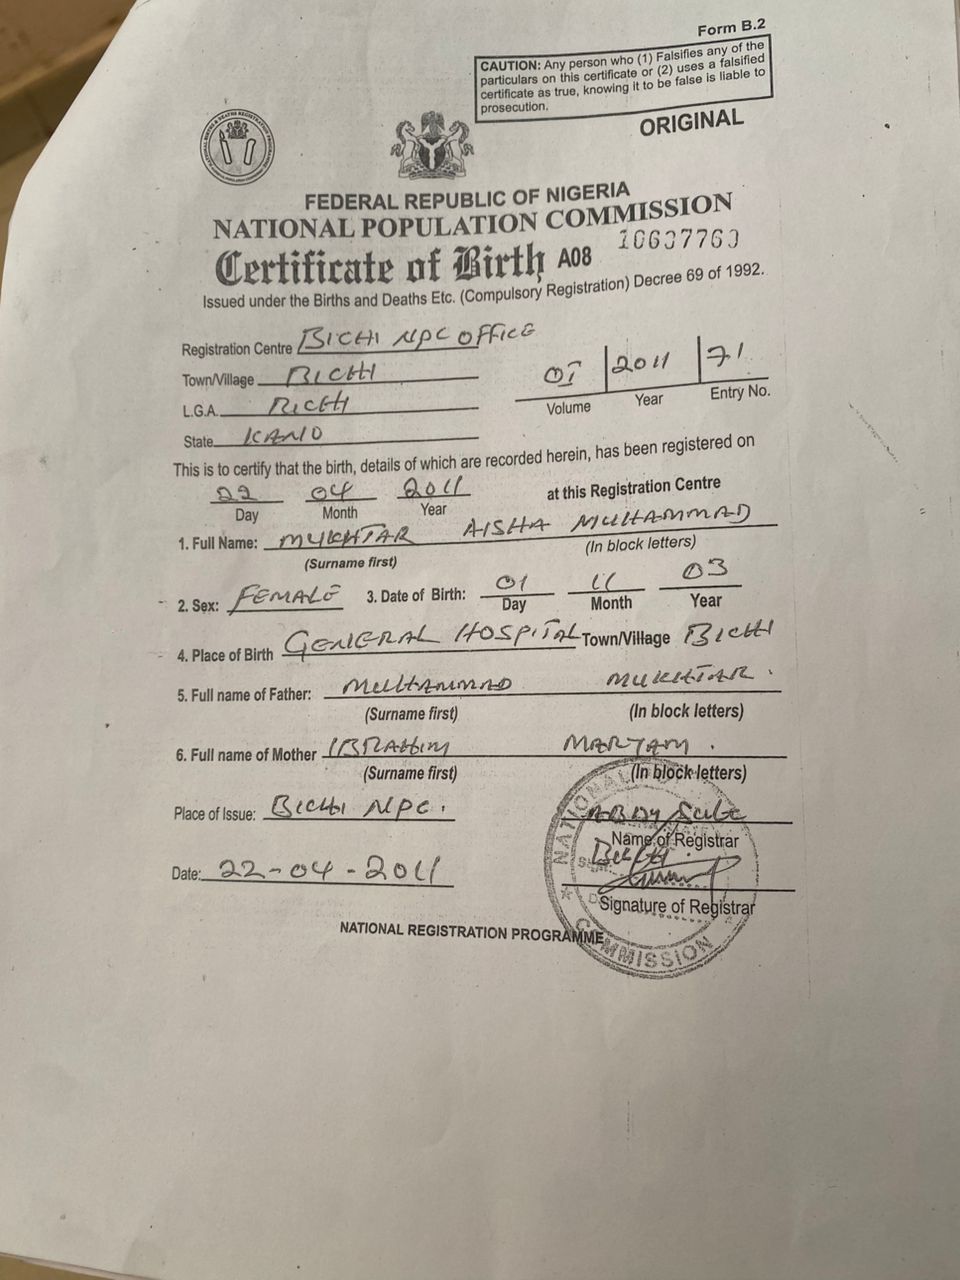 Form B.2
CAUTION: Any person who (1) Falsifies any of the
particulars on this certificate or (2) uses a falsified
certificate as true, knowing it to be false is liable to
prosecution.
ORIGINAL
FEDERAL REPUBLIC OF NIGERIA
NATIONAL POPULATION COMMISSION
Certificate of Birth A08 10637763
Issued under the Births and Deaths Etc. (Compulsory Registration) Decree 69 of 1992.
Registration Centre BICHI NPC OFFICE
Town/Village BICHI
L.G.A. BICHI
State KANO
01 2011 71
Volume Year Entry No.
This is to certify that the birth, details of which are recorded herein, has been registered on
22 04 2011 at this Registration Centre
Day Month Year
1. Full Name: MUKHTAR AISHA MUHAMMAD
(Surname first) (In block letters)
2. Sex: FEMALE 3. Date of Birth: 01 11 03
Day Month Year
4. Place of Birth GENERAL HOSPITAL Town/Village BICHI
5. Full name of Father: MUHAMMAD MUKHTAR.
(Surname first) (In block letters)
6. Full name of Mother IBRAHIM MARYAM.
(Surname first) (In block letters)
Place of Issue: BICHI NPC.
Name of Registrar
Date: 22-04-2011
Signature of Registrar
NATIONAL REGISTRATION PROGRAMME
NATIONAL
COMMISSION